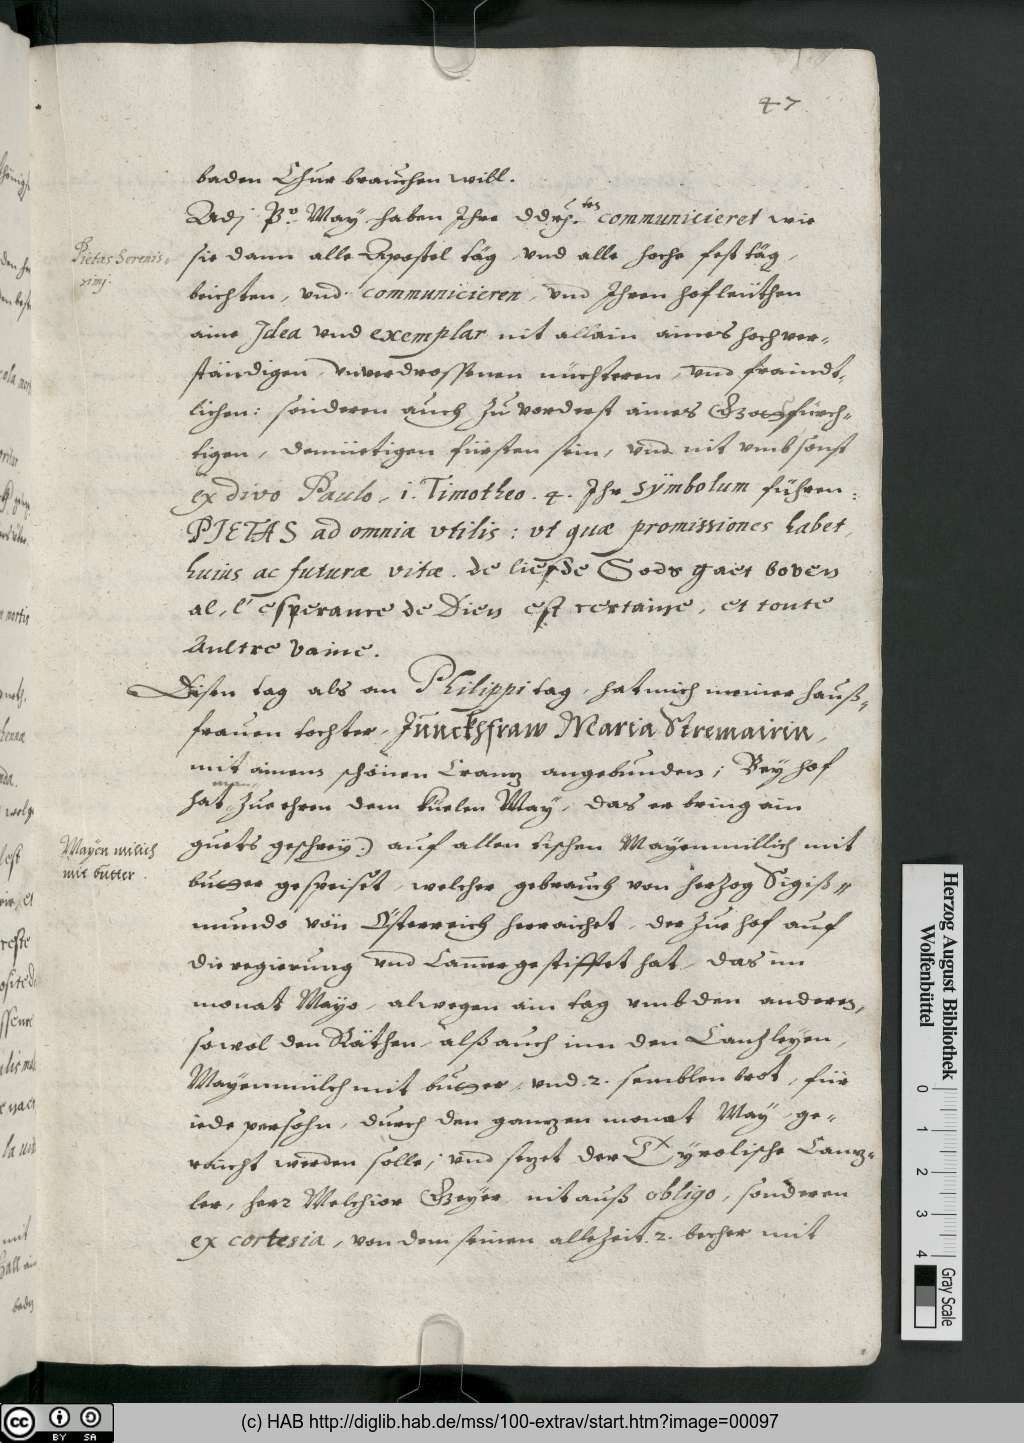 47
baden Chur brauchen will.
Adj P.o May haben Ihre ddrch.tes communicieret wie
Pietas Serenis-
simj.
sie dann alle Apostel täg, vnd alle hoche fest täg,
beichten, vnd communicieren, vnd Ihren hofleüthen
aine Idea vnd exemplar nit allain aines hochver-
ständigen, vnverdrossenen nüchteren, vnd fraindt-
lichen: sonderen auch zu vorderst aines Gottsfürch-
tigen, demüetigen fürsten sein, vnd nit vmb sonst
ex divo Paulo, i. Timotheo. 4. Ihr symbolum führen:
PIETAS ad omnia vtilis: vt quæ promissiones habet,
huius ac futuræ vitæ. de liefde Gods gaet boven
al, l'esperance de Dieu est certaine, et toute
Aultre vaine.
Disen tag als an Philippi tag, hat mich meiner hauß-
frauen tochter, Junckhfraw Maria Stremairin,
mit ainem schönen Crantz angebunden; Bey hof
hat man, zue ehren dem küelen May, das er bring ain
guets geschrey) auf allen tischen Mayenmillich mit
Mayen milich
mit butter.
butter gespeiset, welcher gebrauch von herzog Sigiß-
mundo von Österreich herraichet, der zue hof auf
die regierung vnd Camer gestifftet hat, das im
monat Mayo, alwegen ain tag vmb den anderen,
sowol den Räthen, alß auch inn den Canzleyen,
Mayenmilch mit butter, vnd .2. semblen brot, für
iede persohn, durch den gantzen monat May, ge-
raicht werden solle; vnd setzet der Tyrolische Cantz-
ler, herr Melchior Geyer nit auß obligo, sonderen
ex cortesia, von dem seinen allezeit .2. becher mit
Herzog August Bibliothek
Wolfenbüttel
0 1 2 3 4
Gray Scale
cc BY SA
(c) HAB http://diglib.hab.de/mss/100-extrav/start.htm?image=00097